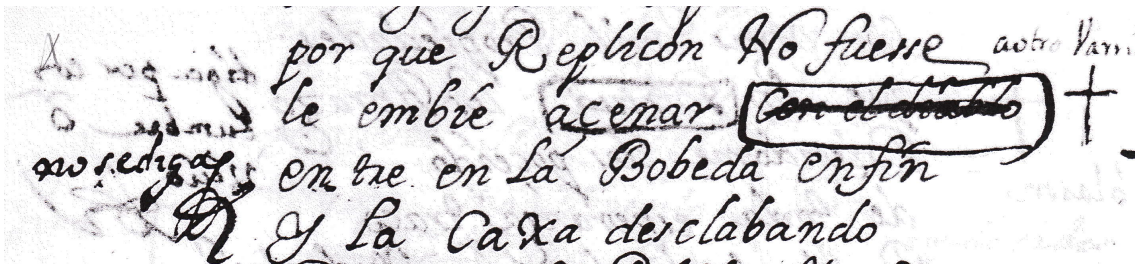 por que Replicon No fuesse aotro barri
le embie açenar con el diablo
no se diga
entre en la Bobeda enfin
y la Caxa desclabando